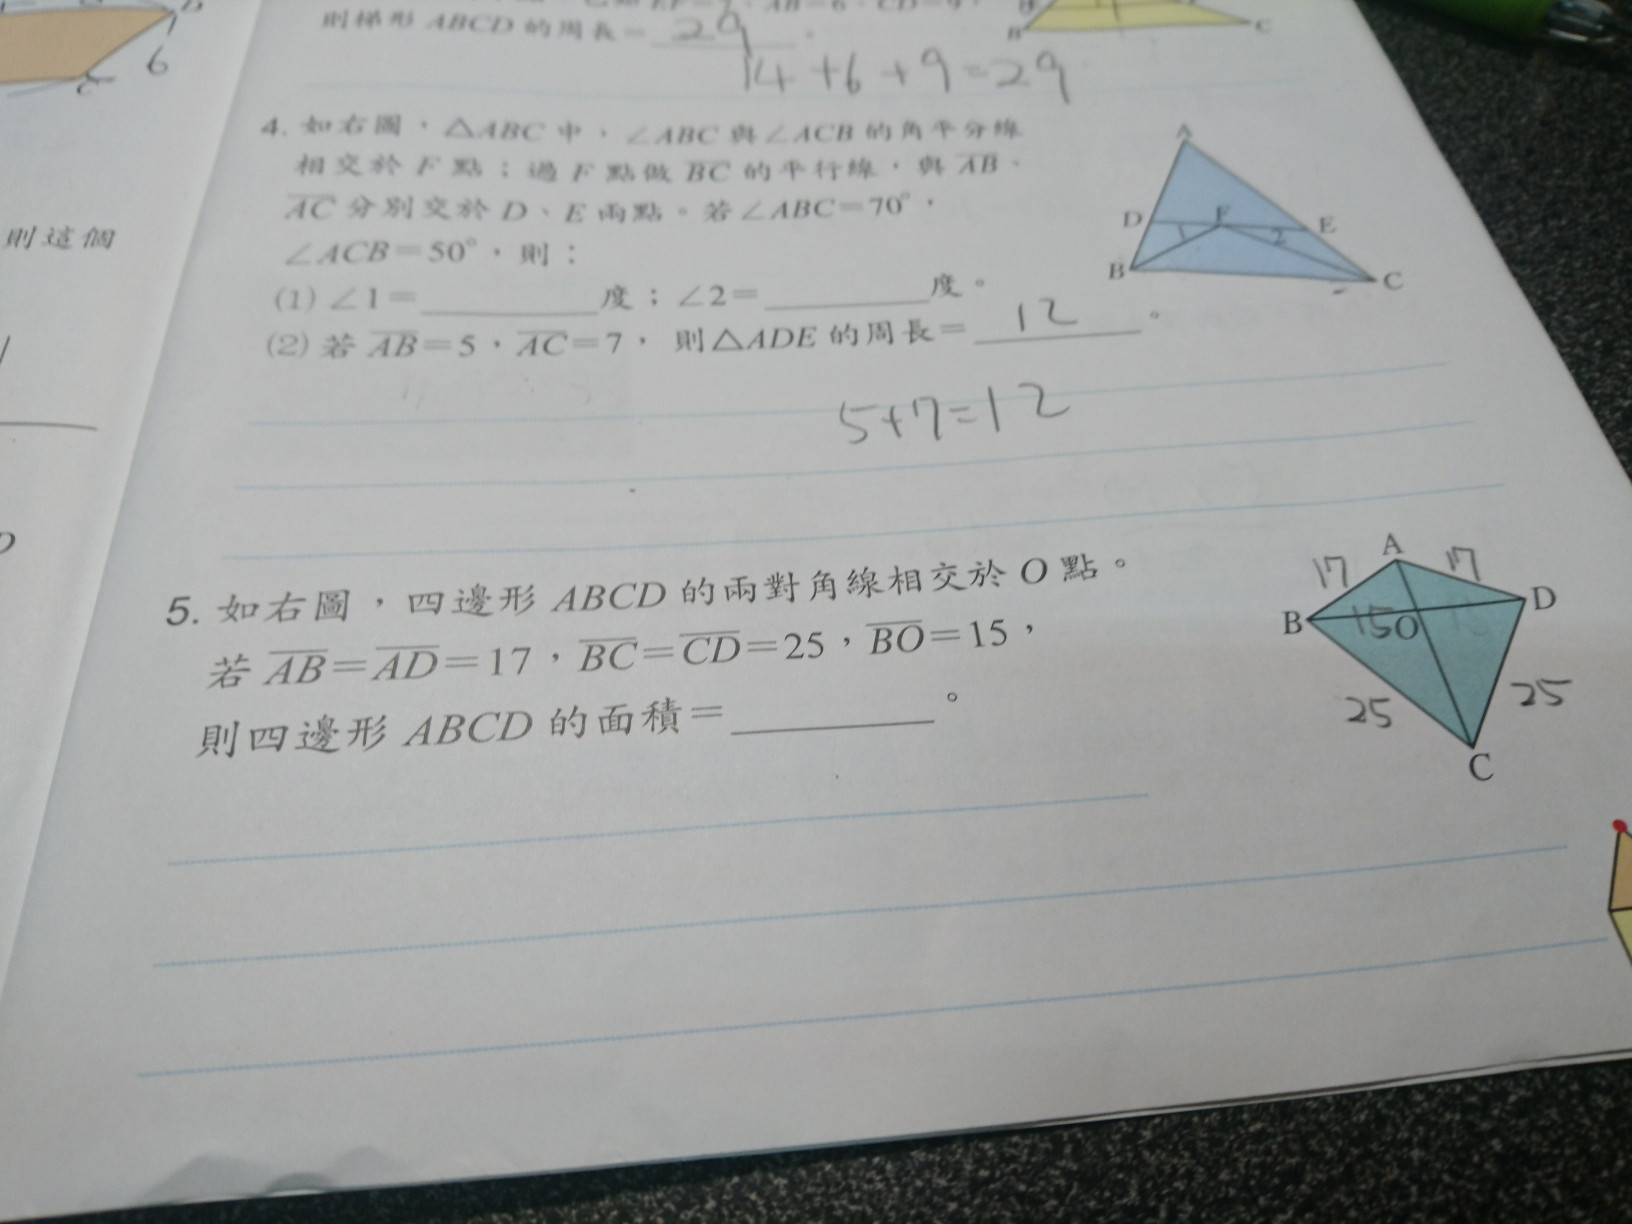 則梯形 ABCD 的周長= 29 。
14+6+9=29
6
4. 如右圖，△ABC 中，∠ABC 與∠ACB 的角平分線
相交於 F 點；過 F 點做 BC 的平行線，與 AB、
AC 分別交於 D、E 兩點。若∠ABC=70°，
∠ACB=50°，則：
(1) ∠1= 度；∠2= 度。
(2) 若 AB=5，AC=7， 則△ADE 的周長= 12 。
5+7=12
A
D F E
1 2
B C
則這個
5. 如右圖，四邊形 ABCD 的兩對角線相交於 O 點。
若 AB=AD=17，BC=CD=25，BO=15，
則四邊形 ABCD 的面積= 。
A
17 17
B 15 O D
25 25
C